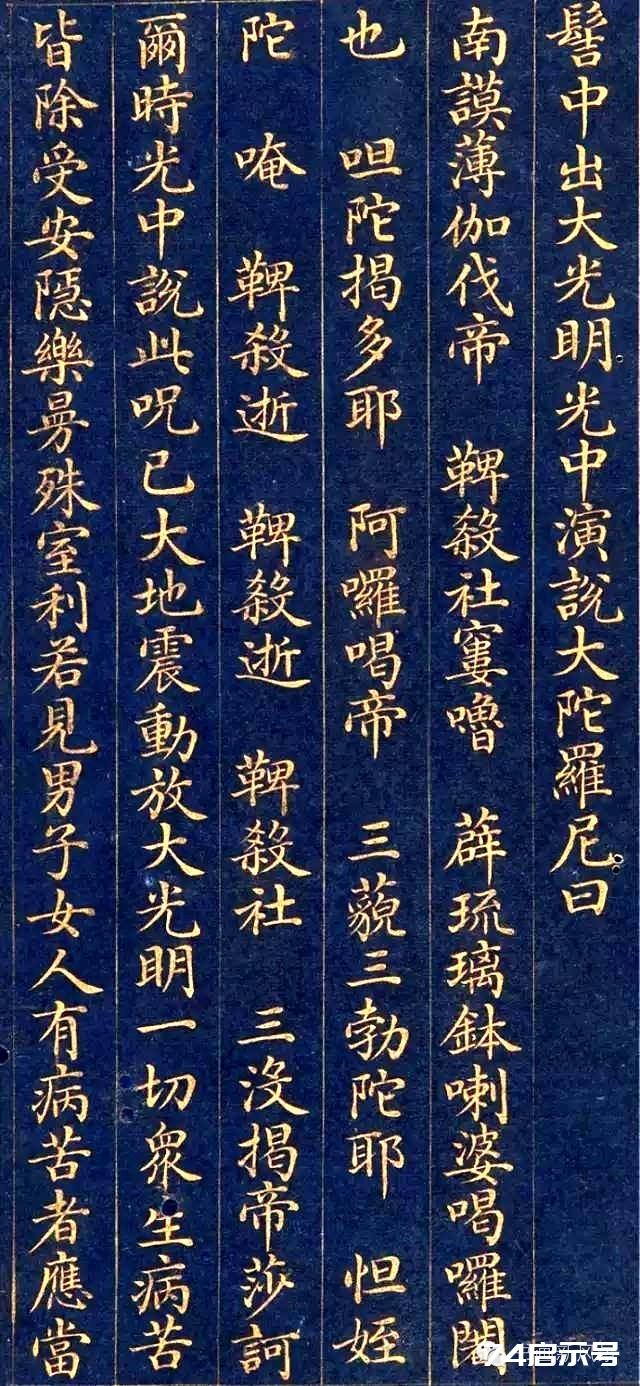 髻中出大光明光中演說大陀羅尼曰
南謨薄伽伐帝 鞞殺社窶嚕 薜琉璃鉢喇婆喝囉闍
也 呾陀揭多耶 阿囉喝帝 三藐三勃陀耶 怛姪
陀 唵 鞞殺逝 鞞殺逝 鞞殺社 三沒揭帝莎訶
爾時光中說此呪已大地震動放大光明一切衆生病苦
皆除受安隱樂曼殊室利若見男子女人有病苦者應當
启示号